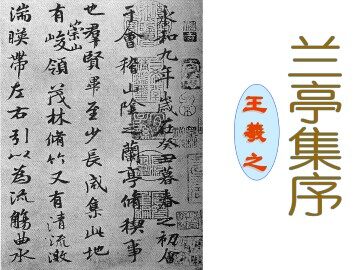 永和九年歲在癸丑暮春之初會
于會稽山陰之蘭亭脩稧事
也羣賢畢至少長咸集此地
有崇山峻領茂林脩竹又有清流激
湍暎帶左右引以為流觴曲水
兰亭集序
王羲之